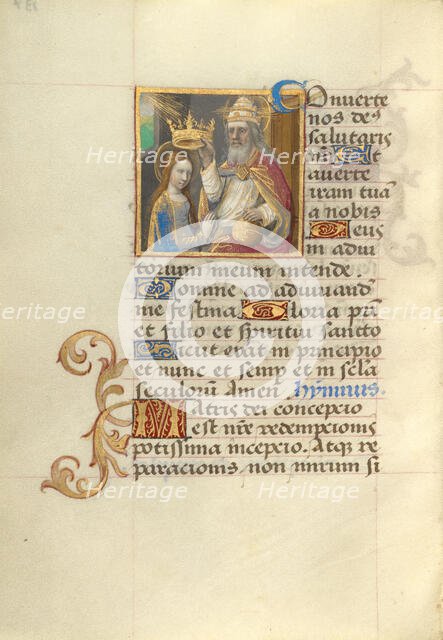 Converte
nos des
salutaris
nr̄ Et
averte
iram tuā
a nobis
Deus
in adiu
torium meum intende.
Domine ad adiuvand
me festina Gloria pr̄i
et filio et spiritui sancto
Sicut erat in principio
et nunc et semp et in scła
seculorū Amen hȳmnus.
Matris dei concepcio
est nr̄e redempcionis
potissima incepcio. Atqȝ re
paracionis non nirum si
Heritage
Heritage
Heritage
Heritage
Heritage
Heritage
Images
Images
Images
Images